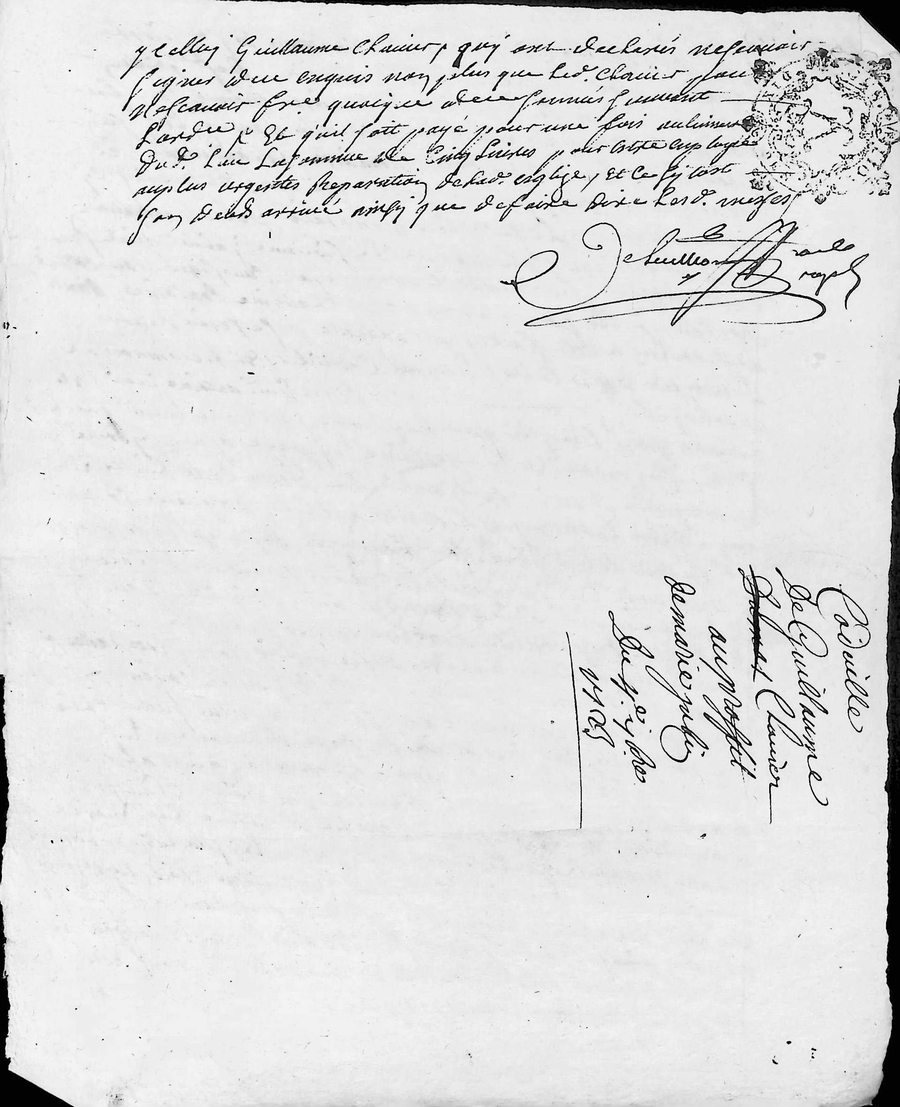 ycelluy Guillaume Chauier, quy ont declarés ne scauoir
signer de ce enquis non plus que led. Chauier pour
ne scauoir fre. quoique de ce sommés suiuant
Lordre / Et qu'il soit payé pour une fois au luminaire
Dud. lieu La somme de Cinq Liures pour estre employee
au plus urgentes Reparations de lad. esglize, et ce sy tost
son deceds arriué ainsy que de faire dire lesd. messes
Codicille
De Guilhaume
Chauier
au proffit
de marie
Du 7e